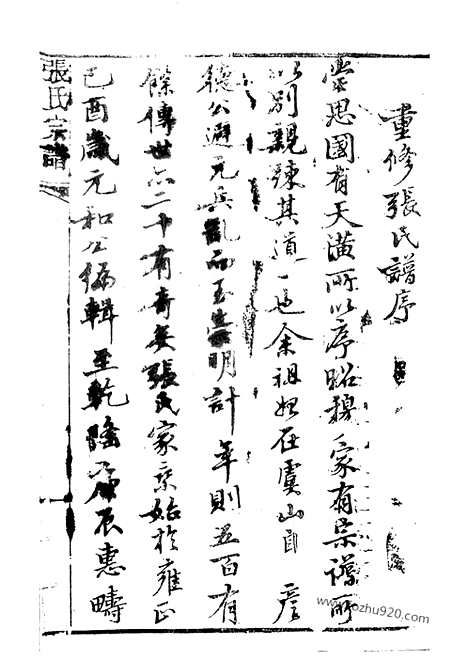 重修張氏譜序
嘗思國有天潢所以序昭穆家有宗譜所
以別親疎其道一也余祖始在虞山自彥
德公避元兵亂而至崇明計年則五百有
餘傳世亦二十有奇矣張氏家乘始於雍正
己酉歲元和公編輯至乾隆庚辰惠疇
張氏宗譜
www.kozhu920.com